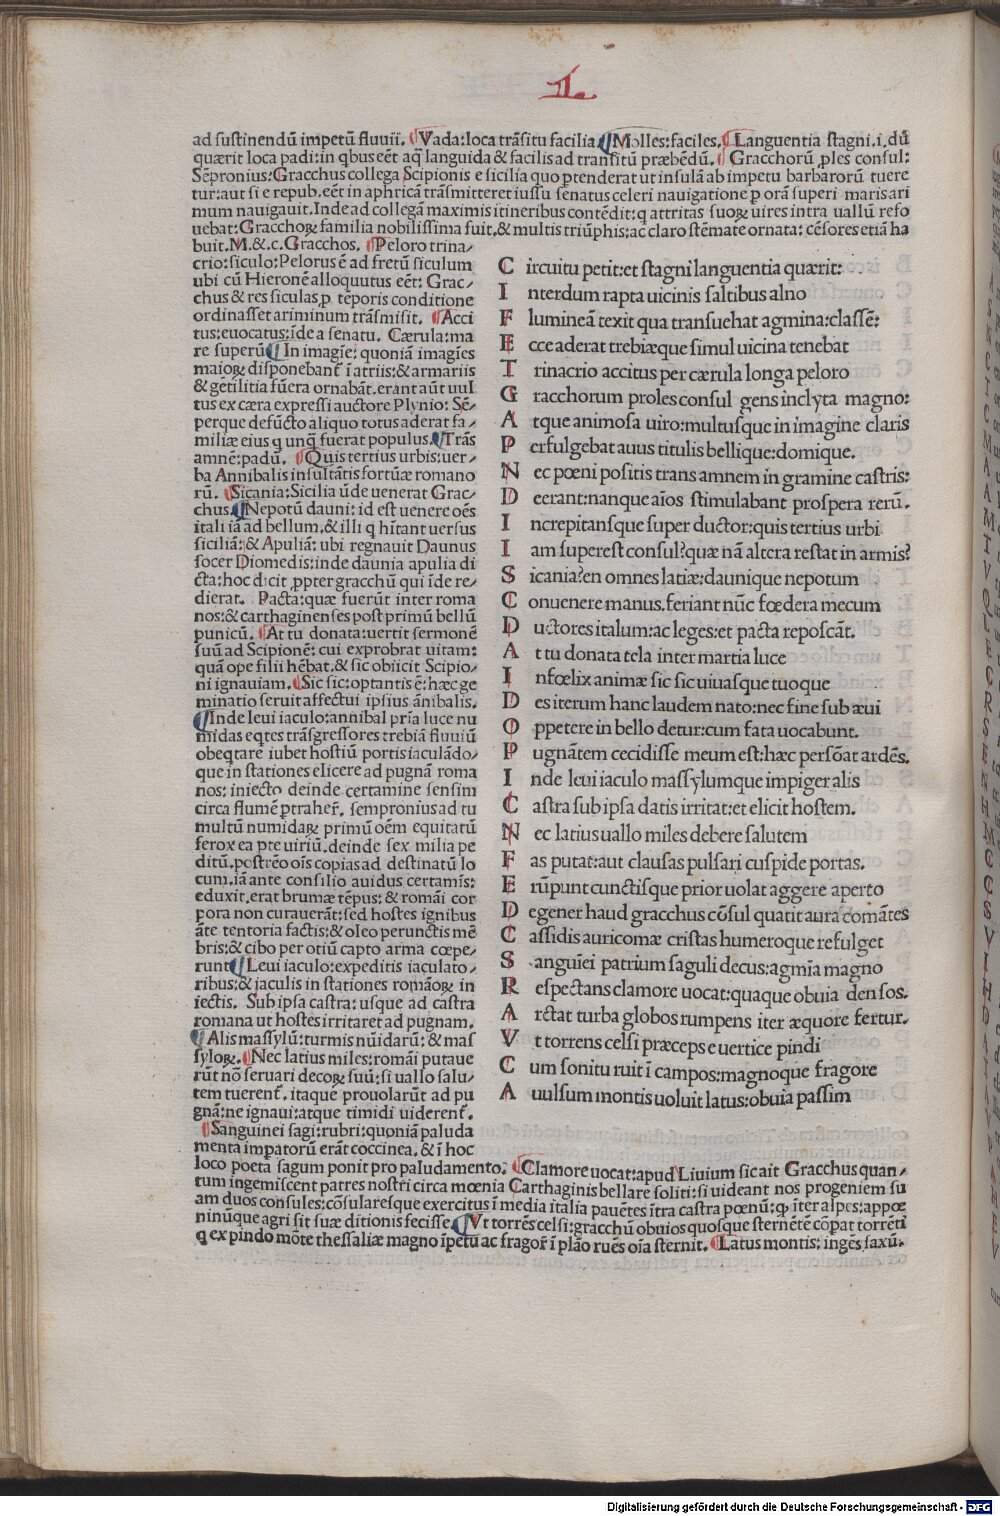 II.
ad sustinendū impetū fluuii. Vada:loca trāsitu facilia Molles:faciles. Languentia stagni.i.dū
quærit loca padi:in qbus eēt aq̄ languida & facilis ad transitū præbēdū. Gracchorū ꝓles consul:
Sēpronius:Gracchus collega Scipionis e sicilia quo ꝓtenderat ut insulā ab impetu barbarorū tuere
tur:aut si e repub.eēt in aphricā trāsmitteret iussu senatus celeri nauigatione ꝑ orā superi maris ari
mum nauigauit.Inde ad collegā maximis itineribus contēdit:q attritas suoꝝ uires intra uallū refo
uebat:Gracchoꝝ familia nobilissima fuit,& multis triūphis:ac claro stēmate ornata: cēsores etiā ha
buit.M.&.c.Gracchos. Peloro trina-
crio:siculo:Pelorus ē ad fretū siculum
ubi cū Hieronē alloquutus eēt: Grac-
chus & res siculas ꝑ tēporis conditione
ordinasset ariminum trāsmisit. Acci
tus:euocatus:īde a senatu. Cærula:ma
re superū In imagīe: quoniā imagīes
maioꝝ disponebant̄ ī atriis:& armariis
& gētilitia fūera ornabāt.erant aūt uul
tus ex cæra expressi auctore Plynio: Sē-
perque defūcto aliquo totus aderat fa-
miliæ eius q unq̄ fuerat populus. Trās
amnē:padū. Quis tertius urbis:uer-
ba Annibalis insultātis fortūæ romano
rū. Sicania:Sicilia ūde uenerat Grac-
chus. Nepotū dauni: id est uenere oēs
itali iā ad bellum,& illi q hītant uersus
siciliā:& Apuliā: ubi regnauit Daunus
socer Diomedis:inde daunia apulia di
cta:hoc dicit ꝓpter gracchū qui īde re-
dierat. Pacta:quæ fuerūt inter roma
nos:& carthaginenses post primū bellū
punicū. At tu donata:uertit sermonē
suū ad Scipionē: cui exprobrat uitam:
quā ope filii hēbat.& sic obiicit Scipio-
ni ignauiam. Sic sic:optantis ē:hæc ge
minatio seruit affectui ipsius ānibalis.
Inde leui iaculo:annibal pr̄ia luce nu
midas eqtes trāsgressores trebiā fluuiū
obeqtare iubet hostiū portis iaculādo-
que in stationes elicere ad pugnā roma
nos: iniecto deinde certamine sensim
circa flumē ꝑtraheꝛ. sempronius ad tu
multū numidaꝝ primū oēm equitatū
ferox ea pte uiriū.deinde sex milia pe
ditū.postrēo oīs copias ad destinatū lo
cum.iā ante consilio auidus certamīs:
eduxit.erat brumæ tēpus: & romāi cor
pora non curauerāt:sed hostes ignibus
āte tentoria factis:& oleo perunctis mē
bris:& cibo per otiū capto arma cœpe-
runt Leui iaculo:expeditis iaculato-
ribus:& iaculis in stationes romāoꝝ in
iectis. Sub ipsa castra: usque ad castra
romana ut hostes irritaret ad pugnam.
Alis massylū:turmis nūidarū: & mas
syloꝝ. Nec latius miles:romāi putaue
rūt nō seruari decoꝝ suū:si uallo salu-
tem tuerent̄. itaque prouolarūt ad pu
gnā:ne ignaui:atque timidi uiderent̄.
Sanguinei sagi:rubri:quoniā paluda
menta impatorū erāt coccinea. & ī hoc
C ircuitu petit:et stagni languentia quærit:
I nterdum rapta uicinis saltibus alno
F lumineā texit qua transuehat agmina:classē:
E cce aderat trebiæque simul uicina tenebat
T rinacrio accitus per cærula longa peloro
G racchorum proles consul gens inclyta magno:
A tque animosa uiro:multusque in imagine claris
P erfulgebat auus titulis bellique:domique.
N ec pœni positis trans amnem in gramine castris:
D eerant:nanque aīos stimulabant prospera rerū.
I ncrepitansque super ductor:quis tertius urbi
I am superest consul?quæ nā altera restat in armis?
S icania?en omnes latiæ:daunique nepotum
C onuenere manus.feriant nūc fœdera mecum
D uctores italum:ac leges:et pacta reposcāt.
A t tu donata tela inter martia luce
I nfœlix animæ sic sic uiuasque tuoque
D es iterum hanc laudem nato:nec fine sub æui
O ppetere in bello detur:cum fata uocabunt.
P ugnātem cecidisse meum est:hæc persōat ardēs.
I nde leui iaculo massylumque impiger alis
C astra sub ipsa datis irritat:et elicit hostem.
N ec latius uallo miles debere salutem
F as putat:aut clausas pulsari cuspide portas.
E rūpunt cunctisque prior uolat aggere aperto
D egener haud gracchus cōsul quatit aura comātes
C assidis auricomæ cristas humeroque refulget
S anguīei patrium saguli decus:agmīa magno
R espectans clamore uocat:quaque obuia densos.
A rctat turba globos rumpens iter æquore fertur.
V t torrens celsi præceps e uertice pindi
C um sonitu ruit ī campos:magnoque fragore
A uulsum montis uoluit latus:obuia passim
loco poeta sagum ponit pro paludamento. Clamore uocat:apud Liuium sic ait Gracchus quan-
tum ingemiscent patres nostri circa mœnia Carthaginis bellare soliti:si uideant nos progeniem su
am duos consules:cōsularesque exercitus ī media italia pauētes ītra castra pœnū:ꝙ iter alpes:appœ
ninūque agri sit suæ ditionis fecisse. Vt torrēs celsi:gracchū obuios quosque sternētē cōpat torrēti
q ex pindo mōte thessaliæ magno īpetū ac fragoꝛ ī plāo ruēs oīa sternit. Latus montis: ingēs saxū.
Digitalisierung gefördert durch die Deutsche Forschungsgemeinschaft - DFG